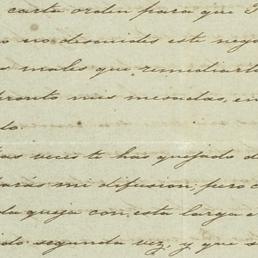 carta orden para que
no descuides este neg
males que remediarlo
pronto mis mesadas, en
do.
veces te has quejado d
mi difusion; pero
queja con esta larga
segunda vez, y que s